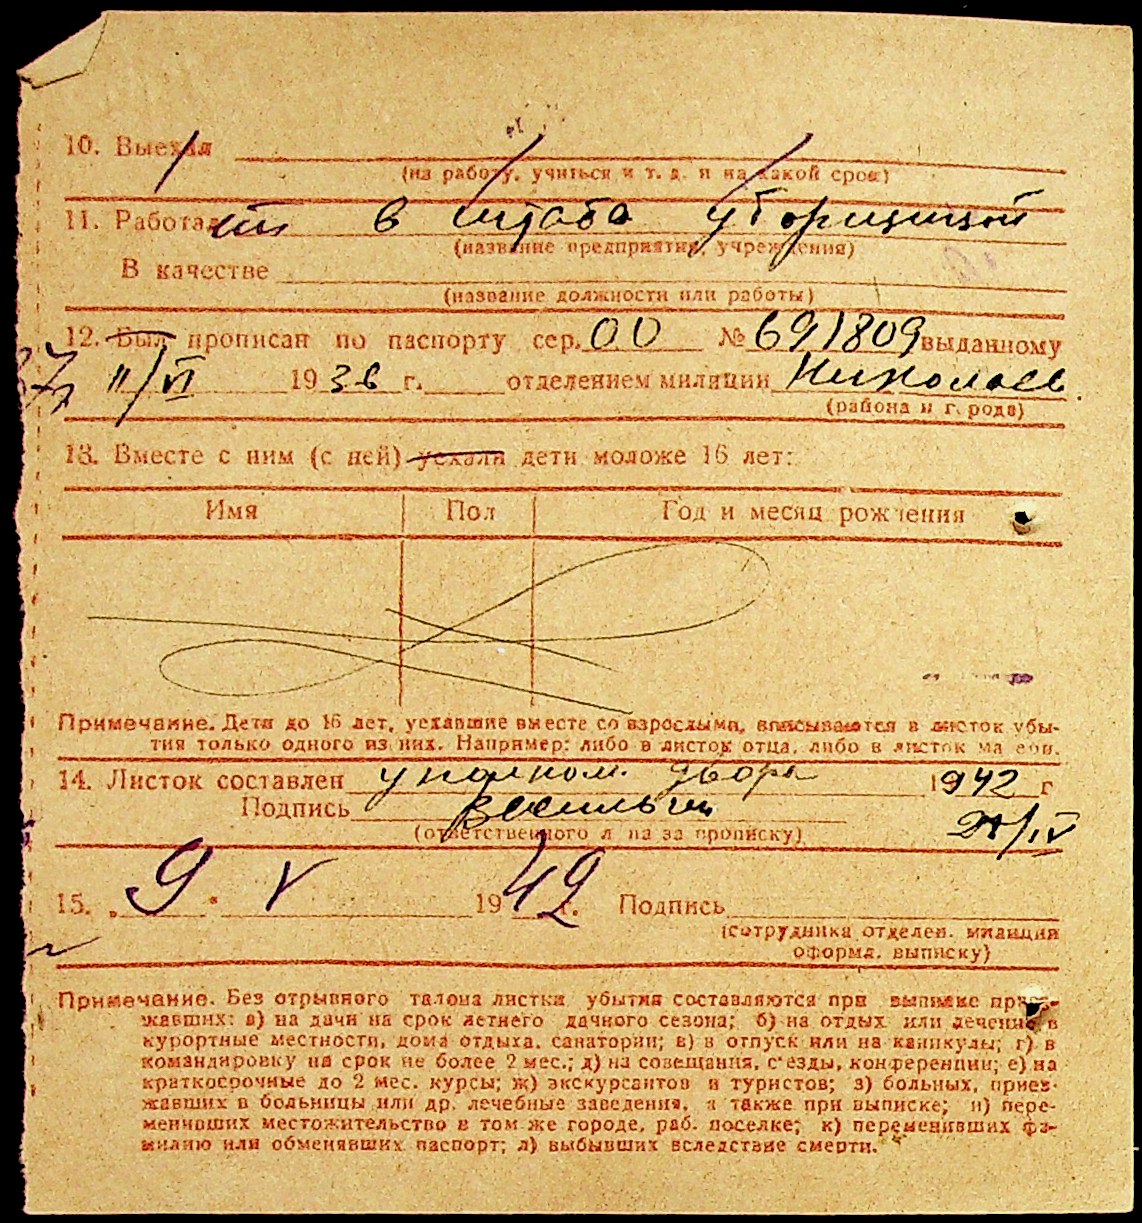 10. Выехал
(на работу, учиться и т. д. и на какой срок)
11. Работал в штаба уборщицой
(название предприятия, учреждения)
В качестве
(название должности или работы)
12. Был прописан по паспорту сер. ОО № 691809 выданному
11/VI 1936 г. отделением милиции Николаев
(района и города)
13. Вместе с ним (с ней) уехали дети моложе 16 лет:
Имя Пол Год и месяц рождения
Примечание. Дети до 16 лет, уехавшие вместе со взрослыми, вписываются в листок убы-
тия только одного из них. Например: либо в листок отца, либо в листок матери.
14. Листок составлен уполном. двора 1942 г
Подпись
(ответственного лица за прописку) /IV
15. „9" V 1942 г. Подпись
(сотрудника отделен. милиции
оформл. выписку)
Примечание. Без отрывного талона листка убытия составляются при выписке приез-
жавших: а) на дачи на срок летнего дачного сезона; б) на отдых или лечение в
курортные местности, дома отдыха, санатории; в) в отпуск или на каникулы; г) в
командировку на срок не более 2 мес.; д) на совещания, с'езды, конференции; е) на
краткосрочные до 2 мес. курсы; ж) экскурсантов и туристов; з) больных, приез-
жавших в больницы или др. лечебные заведения, а также при выписке; и) пере-
менивших местожительство в том же городе, раб. поселке; к) переменивших фа-
милию или обменявших паспорт; л) выбывших вследствие смерти.